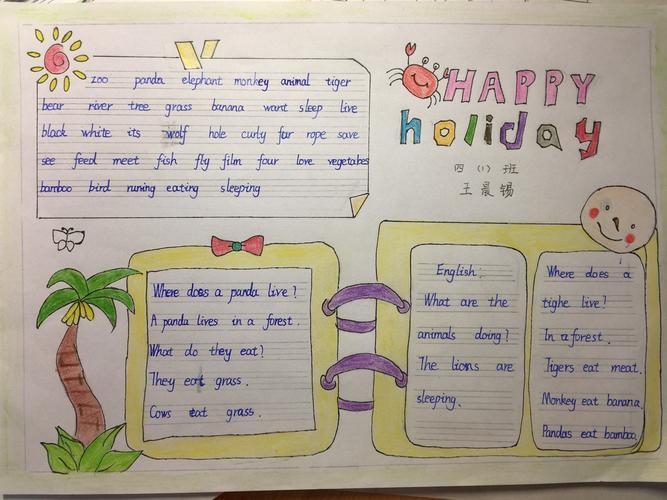 HAPPY
holiday
四(1)班
王晨锡
zoo panda elephant monkey animal tiger
bear river tree grass banana want sleep live
black white its wolf hole curly far rope save
see feed meet fish fly film four love vegetabes
bamboo bird runing eating sleeping
Where does a panda live?
A panda lives in a forest.
What do they eat?
They eat grass.
Cows eat grass.
English:
What are the
animals doing?
The lions are
sleeping.
Where does a
tighe live?
In a forest.
Tigers eat meat.
Monkey eat banana.
Pandas eat bamboo.